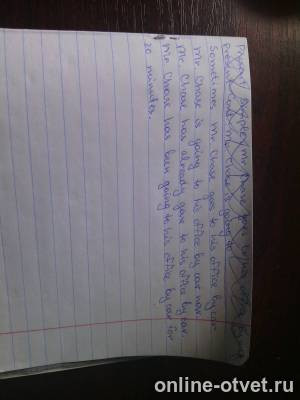 Sometimes Mr. Chase goes to his office by car.
Mr. Chase is going to his office by car now.
Mr. Chase has already gone to his office by car.
Mr. Chase has been going to his office by car for
20 minutes.
online-otvet.ru